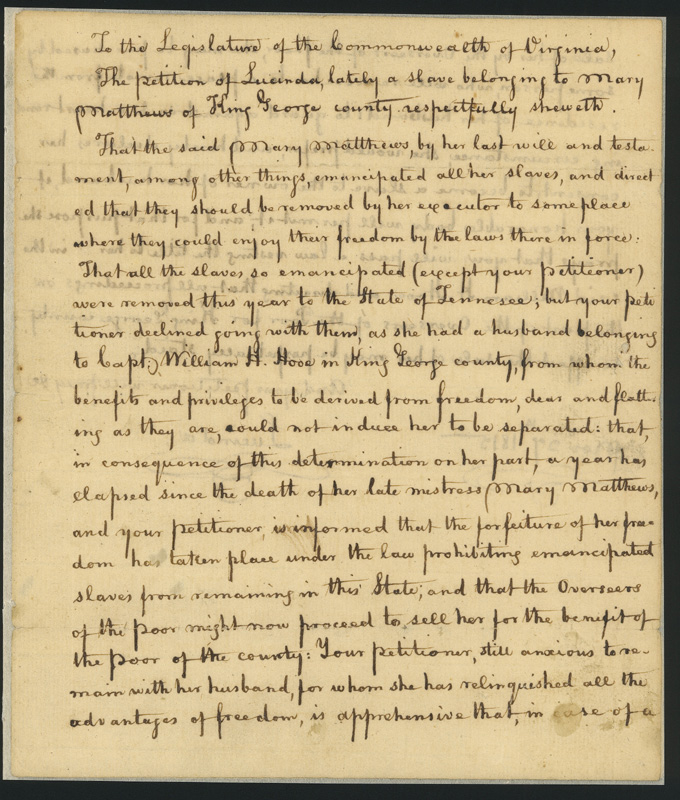 To the Legislature of the Commonwealth of Virginia,
The petition of Lucinda, lately a slave belonging to Mary
Matthews of King George county respectfully sheweth.
That the said Mary Matthews, by her last will and testa-
ment, among other things, emancipated all her slaves, and direct
ed that they should be removed by her executor to some place
where they could enjoy their freedom by the laws there in force:
That all the slaves so emancipated (except your petitioner)
were removed this year to the State of Tennesee; but your peti
tioner declined going with them, as she had a husband belonging
to Capt: William H. Hooe in King George county, from whom the
benefits and privileges to be derived from freedom, dear and flatter-
ing as they are, could not induce her to be separated: that,
in consequence of this determination on her part, a year has
elapsed since the death of her late mistress Mary Matthews,
and your petitioner is informed that the forfeiture of her free-
dom has taken place under the law prohibiting emancipated
slaves from remaining in this State; and that the Overseers
of the Poor might now proceed to sell her for the benefit of
the poor of the county: Your petitioner, still anxious to re-
main with her husband, for whom she has relinquished all the
advantages of freedom, is apprehensive that, in case of a